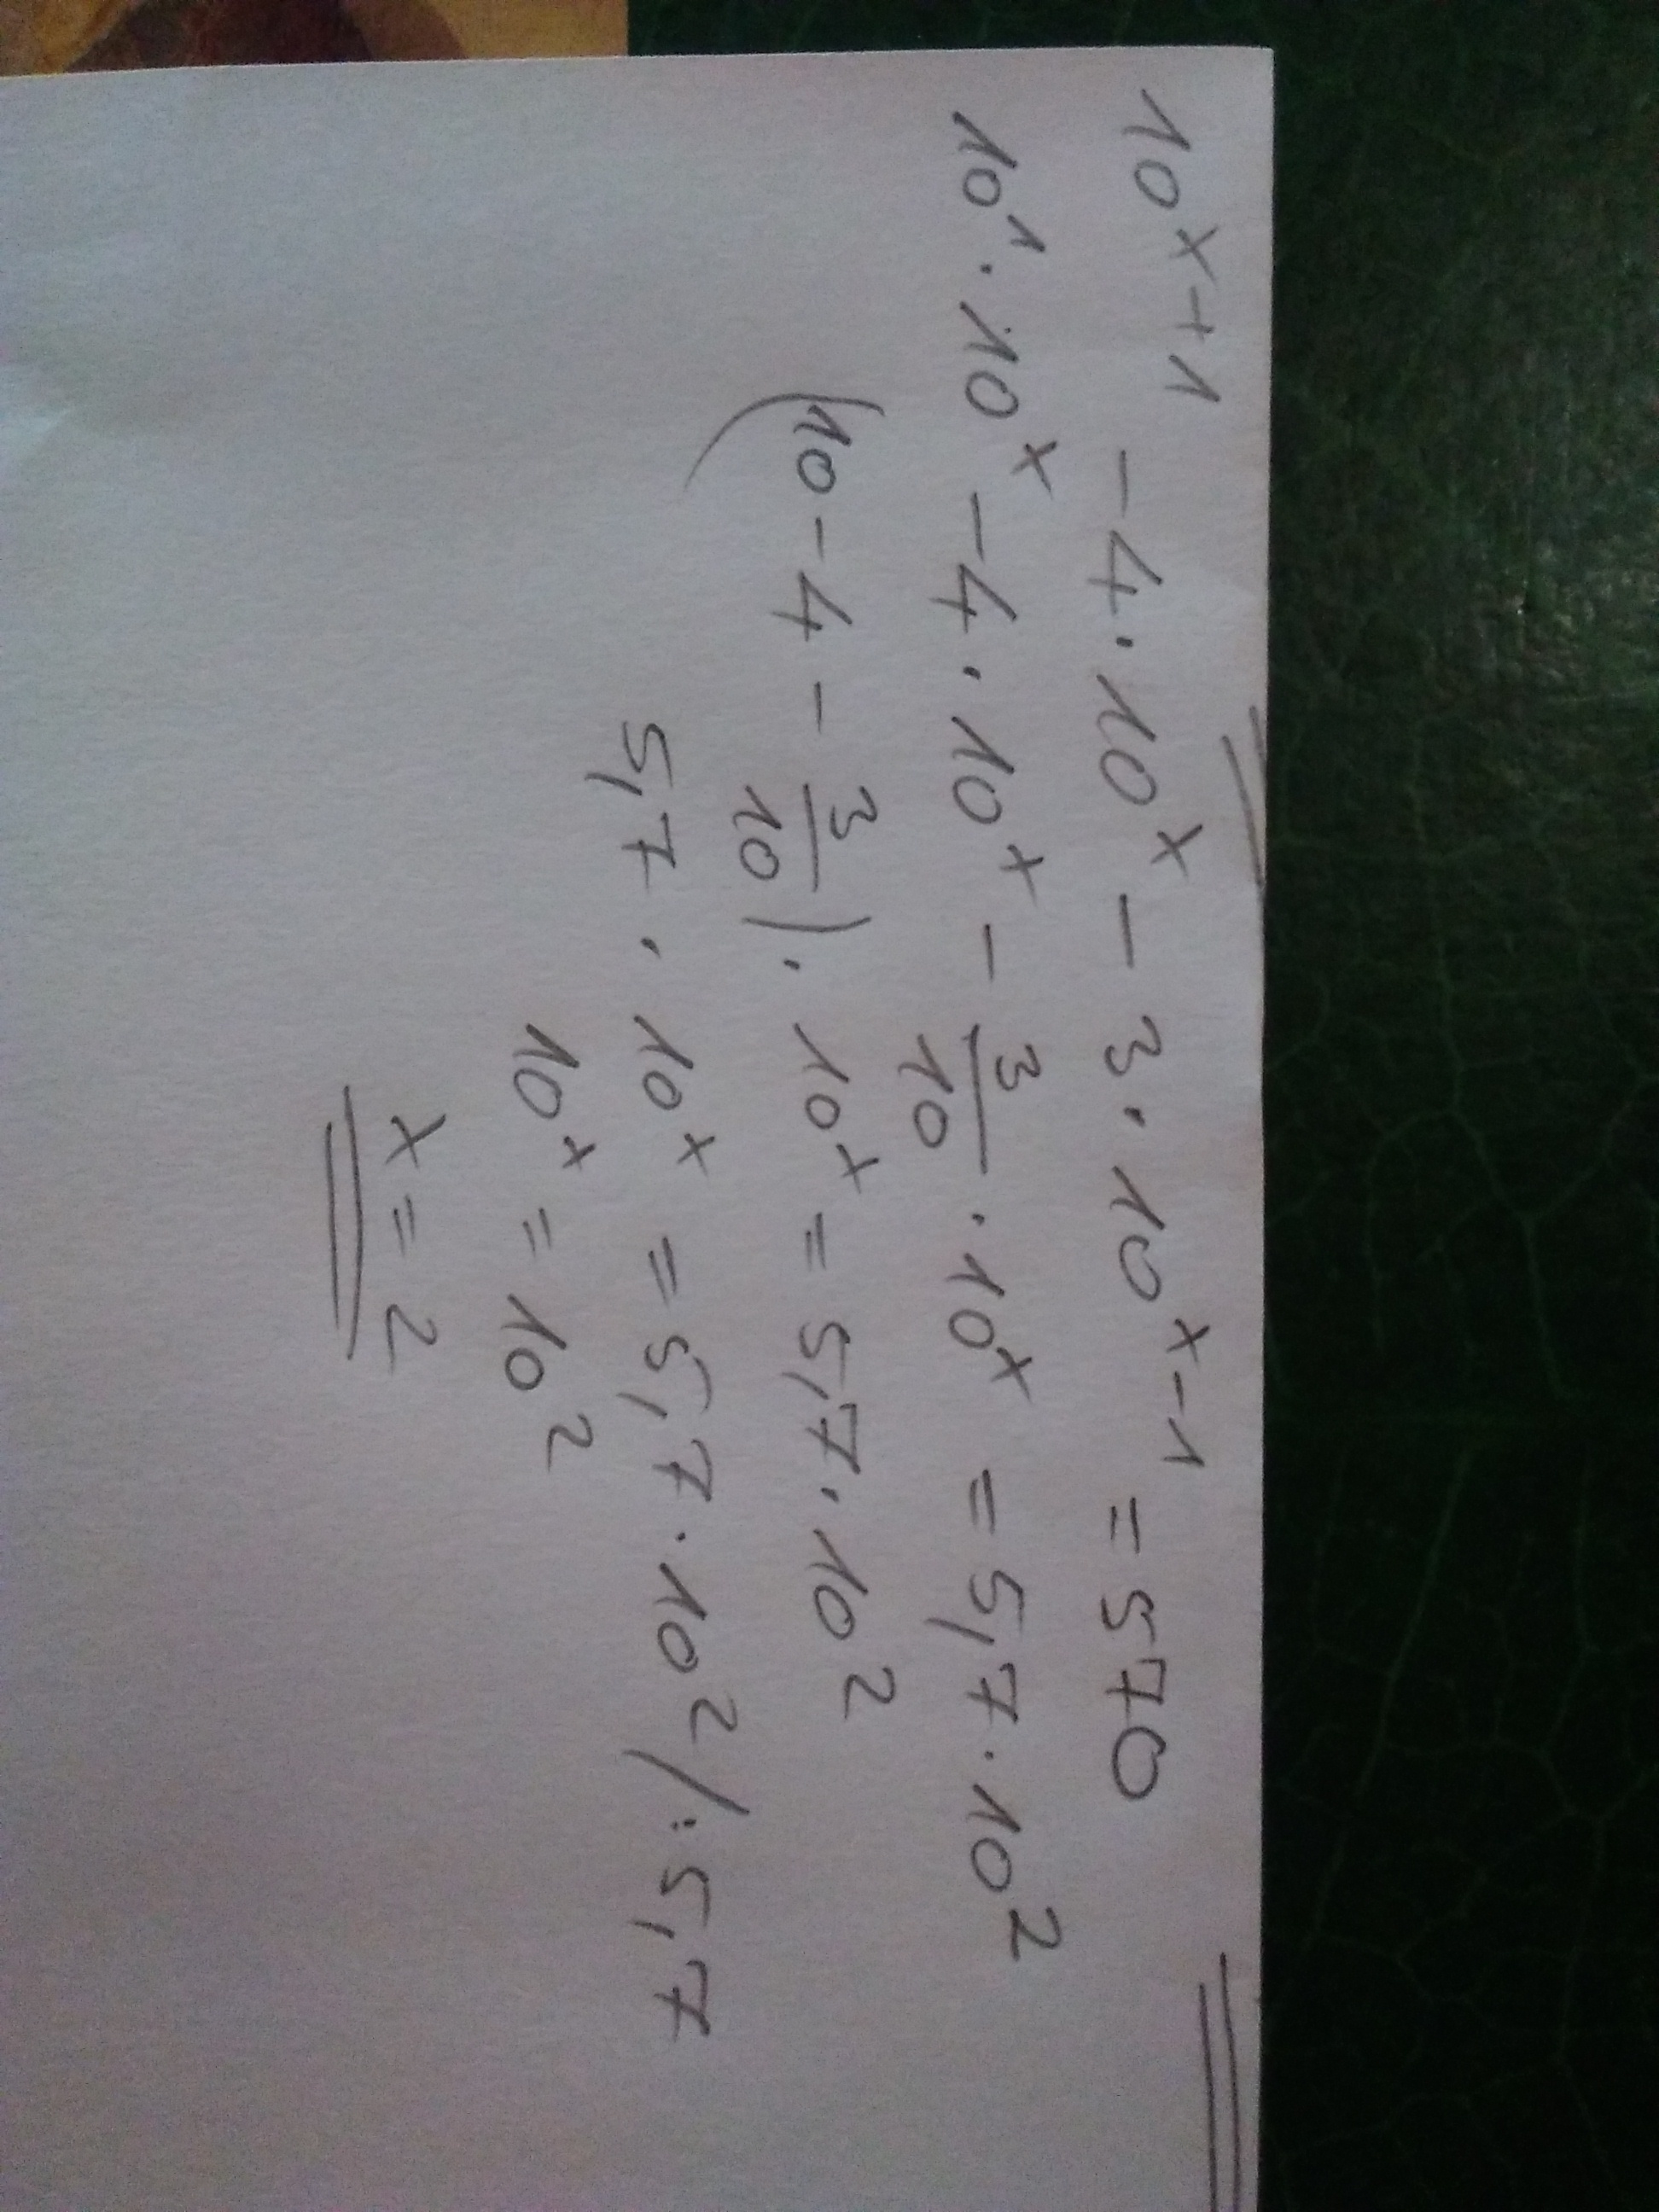 10^{x+1} - 4 · 10^x - 3 · 10^{x-1} = 570
10^1 · 10^x - 4 · 10^x - \frac{3}{10} · 10^x = 5,7 · 10^2
(10 - 4 - \frac{3}{10}) · 10^x = 5,7 · 10^2
5,7 · 10^x = 5,7 · 10^2 /: 5,7
10^x = 10^2
x = 2